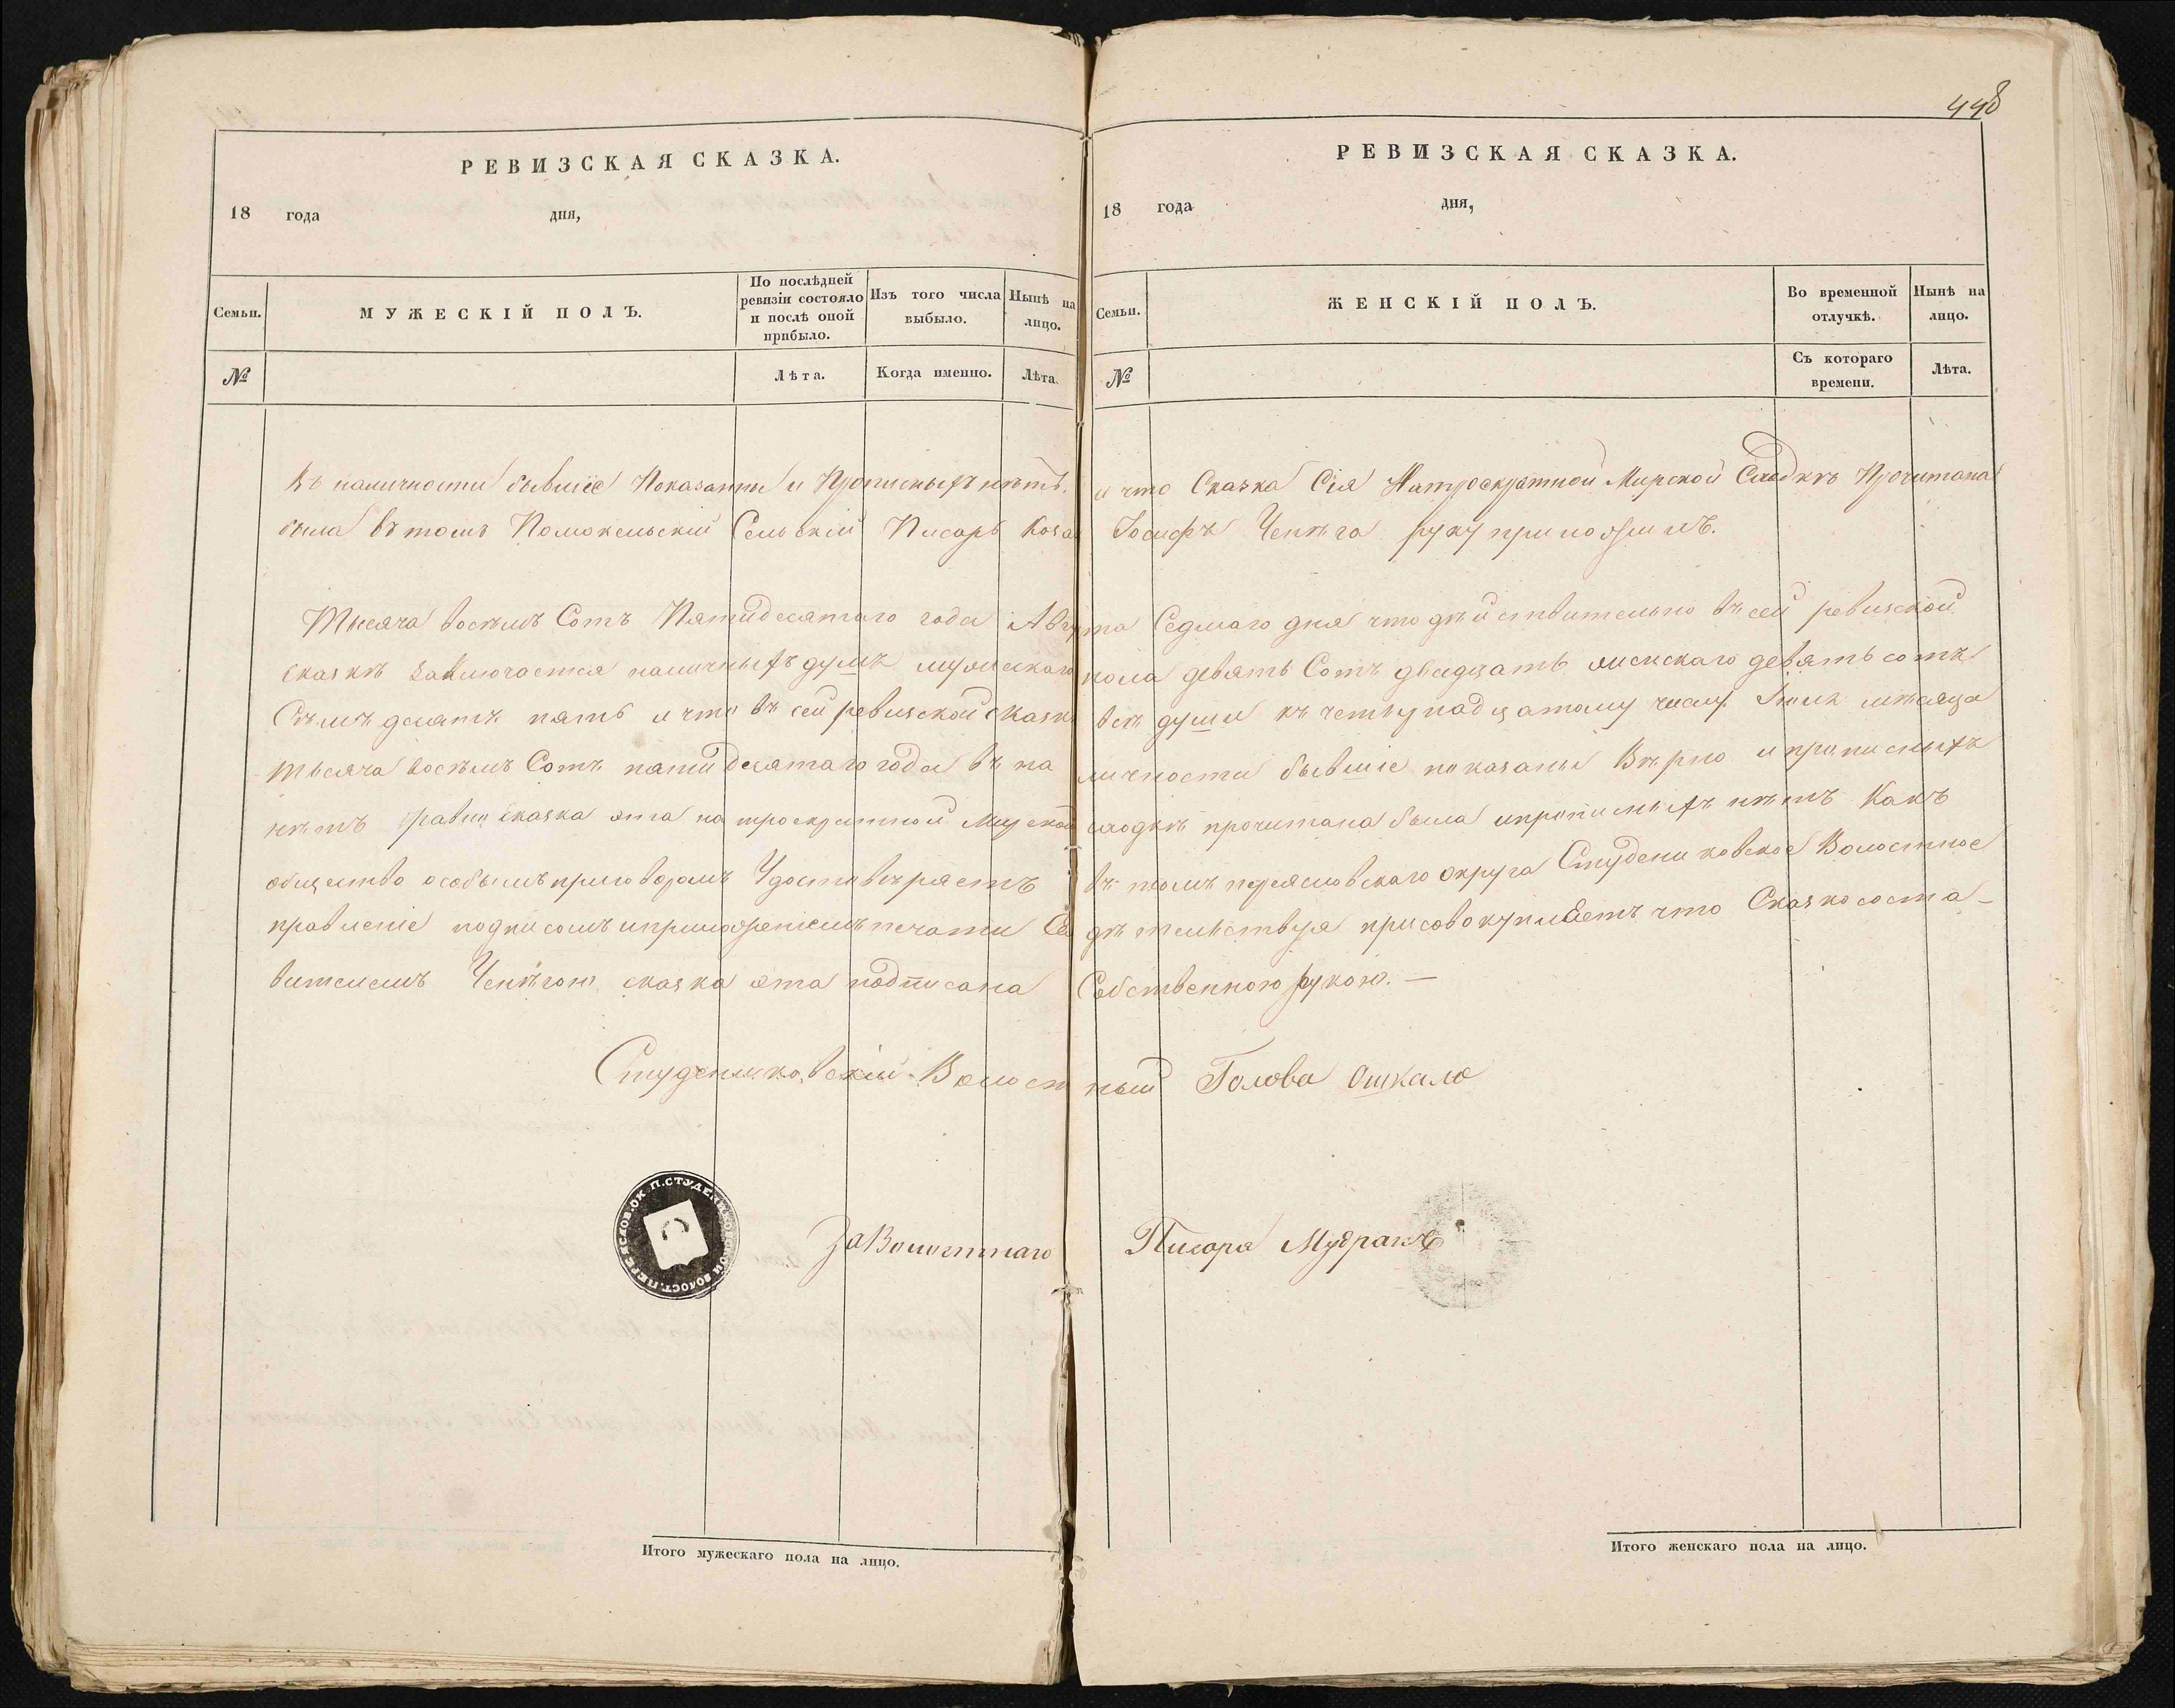 448
РЕВИЗСКАЯ СКАЗКА.
18 года дня,
Семьи. МУЖЕСКІЙ ПОЛЪ. По послѣдней ревизіи состояло и послѣ оной прибыло. Изъ того числа выбыло. Нынѣ на лицо.
№ Лѣта. Когда именно. Лѣта.
РЕВИЗСКАЯ СКАЗКА.
18 года дня,
Семьи. ЖЕНСКІЙ ПОЛЪ. Во временной отлучкѣ. Нынѣ на лицо.
№ Съ котораго времени. Лѣта.
въ наличности бывшіе Показанны и Прописныхъ нѣтъ. и что Сказка Сія Натроекратной Мирской Сходкѣ Прочитана
была въ томъ Помокльскій Сельскій Писарь Козак Іосифъ Чепѣга руку приложилъ.
Тысяча восѣмъ Сотъ Пятидесятаго года Августа Седмаго дня что дѣйствительно въ сей ревизской
сказкѣ Заключается наличныхъ душъ мужескаго пола девять Сотъ двадцать женскаго девять сотъ
Сѣмъдесятъ пять и что въ сей ревизской сказкѣ всѣ души къ четырнадцатому числу Іюля мѣсяца
тысяча восѣмъ Сотъ пятидесятаго года въ наличности бывшіе показаны Вѣрно и прописныхъ
нѣтъ равно сказка эта на троекратной Мирской сходкѣ прочитана была и прописныхъ нѣтъ Какъ
общество особымъ приговоромъ Удостовѣряетъ въ томъ переясловскаго округа Студениковское Волостное
правленіе подписомъ и приложеніемъ печати Свидѣтельствуя присовокупляетъ что Сказкососта-
вителемъ Чепѣгою сказка эта подписана Собственною рукою. —
Студениковскій Волостный Голова Ошкало
За Волостнаго Писаря Мудракъ
ПЕРЕЯСЛОВ. ОК. П. СТУДЕНИКОВСКОЙ ВОЛОСТ.
Итого мужескаго пола на лицо.
Итого женскаго пола на лицо.